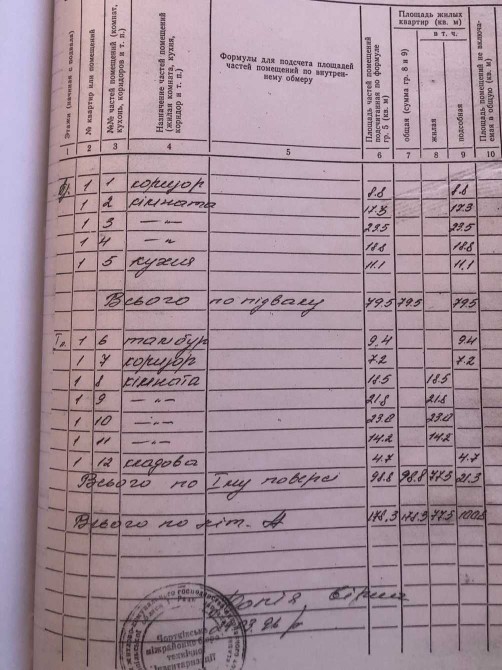 Этажи (начиная с подвала)
№ квартир или помещений
№№ частей помещений (комнат, кухонь, коридоров и т. п.)
Назначение частей помещений (жилая комната, кухня, коридор и т. п.)
Формулы для подсчета площадей частей помещений по внутреннему обмеру
Площадь частей помещений подсчитанная по формуле гр. 5 (кв. м)
Площадь жилых квартир (кв. м)
общая (сумма гр. 8 и 9)
в т. ч.
жилая
подсобная
Площадь помещений не включаемая в общую (кв. м)
1 2 3 4 5 6 7 8 9 10
1 1 коридор 8.8 8.8
1 2 кімната 17.3 17.3
1 3 —"— 23.5 23.5
1 4 —"— 18.8 18.8
1 5 кухня 11.1 11.1
Всього по підвалу 79.5 79.5 79.5
1 6 тамбур 9.4 9.4
1 7 коридор 7.2 7.2
1 8 кімната 18.5 18.5
1 9 —"— 21.8 21.8
1 10 —"— 23.0 23.0
1 11 —"— 14.2 14.2
1 12 кладова 4.7 4.7
Всього по Іму поверсі 98.8 98.8 77.5 21.3
Всього по літ. А 178.3 178.3 77.5 100.8
Копія вірна
Чортківське
міжрайонне бюро
технічної
інвентаризації